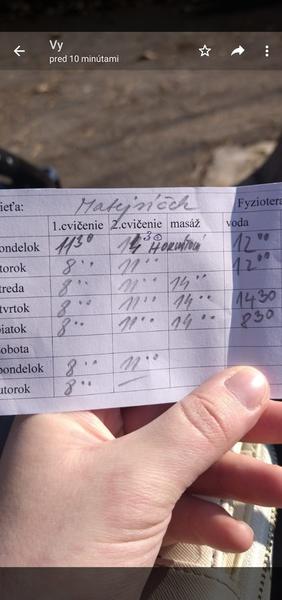 Vy
pred 10 minútami
ieťa: Matejíček Fyziotera
1.cvičenie 2.cvičenie masáž voda
ondelok 11³⁰ 14³⁰ 12⁰⁰
torok 8⁰⁰ 11⁰⁰ 12⁰⁰
treda 8⁰⁰ 11⁰⁰ 14⁰⁰
tvrtok 8⁰⁰ 11⁰⁰ 14⁰⁰ 14³⁰
iatok 8⁰⁰ 11⁰⁰ 14⁰⁰ 8³⁰
obota
ondelok 8⁰⁰ 11⁰⁰
utorok 8⁰⁰ —